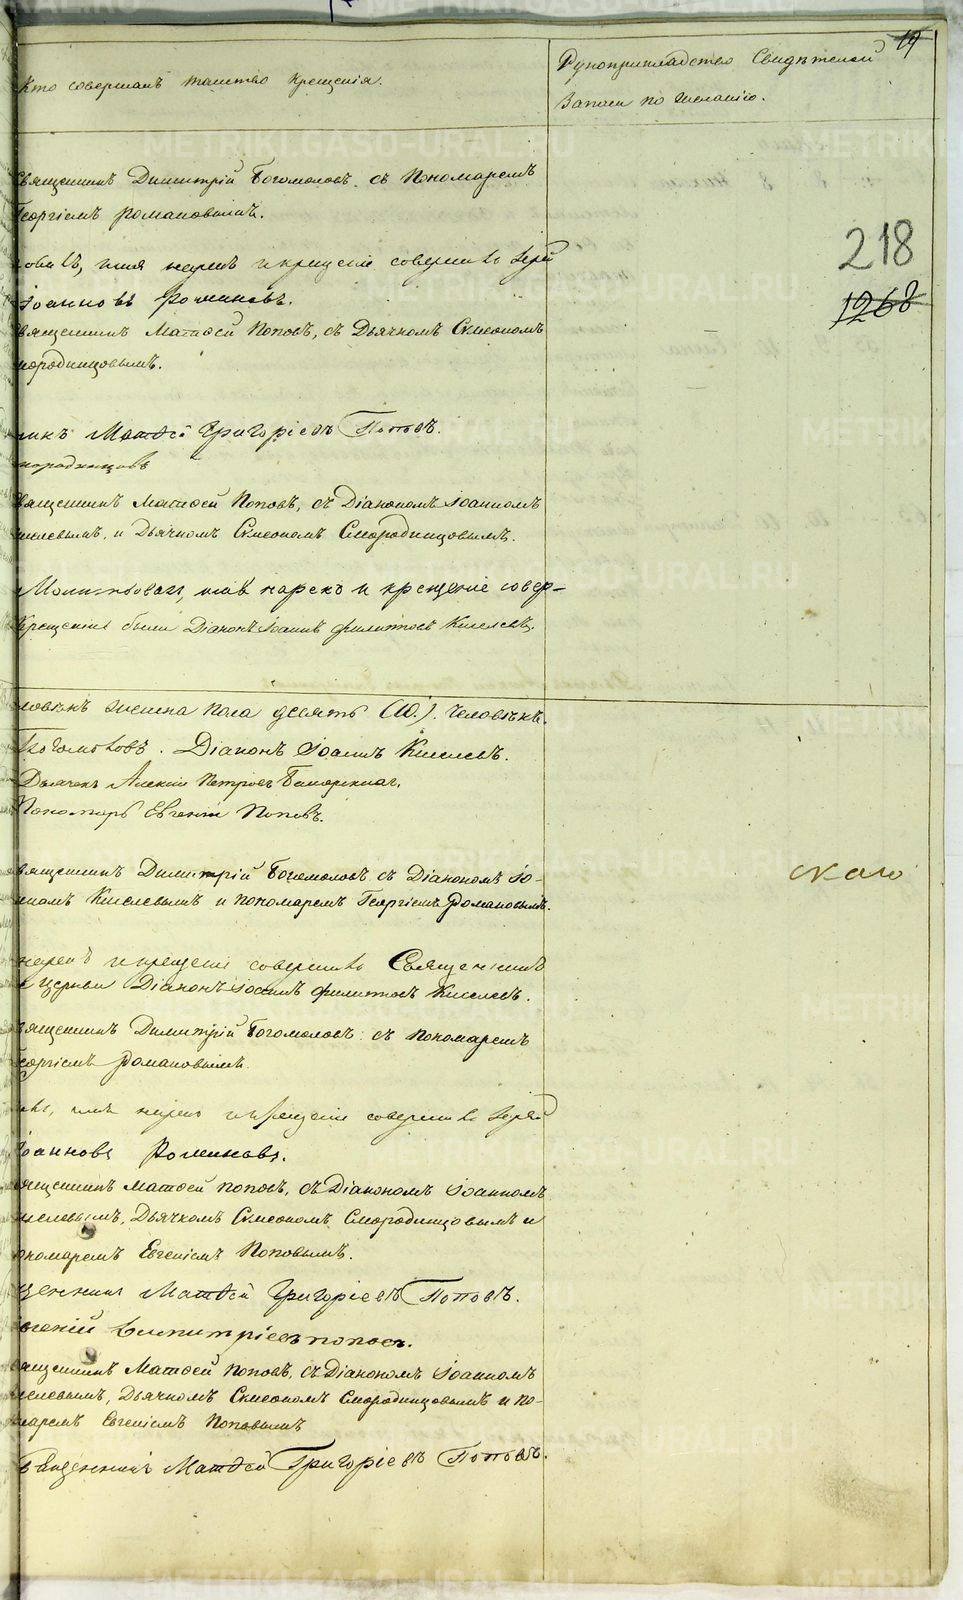 19
Кто совершалъ таинство крещенія.
Рукоприкладство Свидѣтелей
записи по желанію.
Священникъ Димитрій Богомоловъ, съ Пономаремъ
Георгіемъ Романовымъ.
218
1268
имя нарекъ и крещеніе совершилъ Іерей
Іоанновъ Романовъ.
вященникъ Матѳей Поповъ, съ Дьячкомъ Симеономъ
мородинцовымъ.
никъ Матѳей Григоріевъ Поповъ.
мородинцовъ
вященникъ Матѳей Поповъ, съ Діакономъ Іоанномъ
иселевымъ, и Дьячкомъ Симеономъ Смородинцовымъ.
Молитвовалъ, имя нарекъ и крещеніе совер-
Крещеніи были Діаконъ Іоаннъ Филиповъ Киселевъ.
ловѣкъ женска пола десять (10.). Человѣкъ.
Богомоловъ. Діаконъ Іоаннъ Киселевъ.
Дьячекъ Алексій Петровъ
Пономарь Евгеній Поповъ.
вященникъ Димитрій Богомоловъ съ Діакономъ Іо-
анномъ Киселевымъ и Пономаремъ Георгіемъ Романовымъ.
скаго
нарекъ и крещеніе совершилъ Священникъ
Церкви Діаконъ Іоаннъ Филиповъ Киселевъ.
вященникъ Димитрій Богомоловъ съ Пономаремъ
Георгіемъ Романовымъ.
имя нарекъ и крещеніе совершилъ Іерей
Іоанновъ Романовъ.
вященникъ Матѳей Поповъ, съ Діакономъ Іоанномъ
иселевымъ, Дьячкомъ Симеономъ Смородинцовымъ и
ономаремъ Евгеніемъ Поповымъ.
щенникъ Матѳей Григоріевъ Поповъ.
Евгеній Димитріевъ Поповъ.
вященникъ Матѳей Поповъ, съ Діакономъ Іоанномъ
иселевымъ, Дьячкомъ Симеономъ Смородинцовымъ и По-
номаремъ Евгеніемъ Поповымъ
Священникъ Матѳей Григоріевъ Поповъ.
METRIKI.GASO-URAL.RU